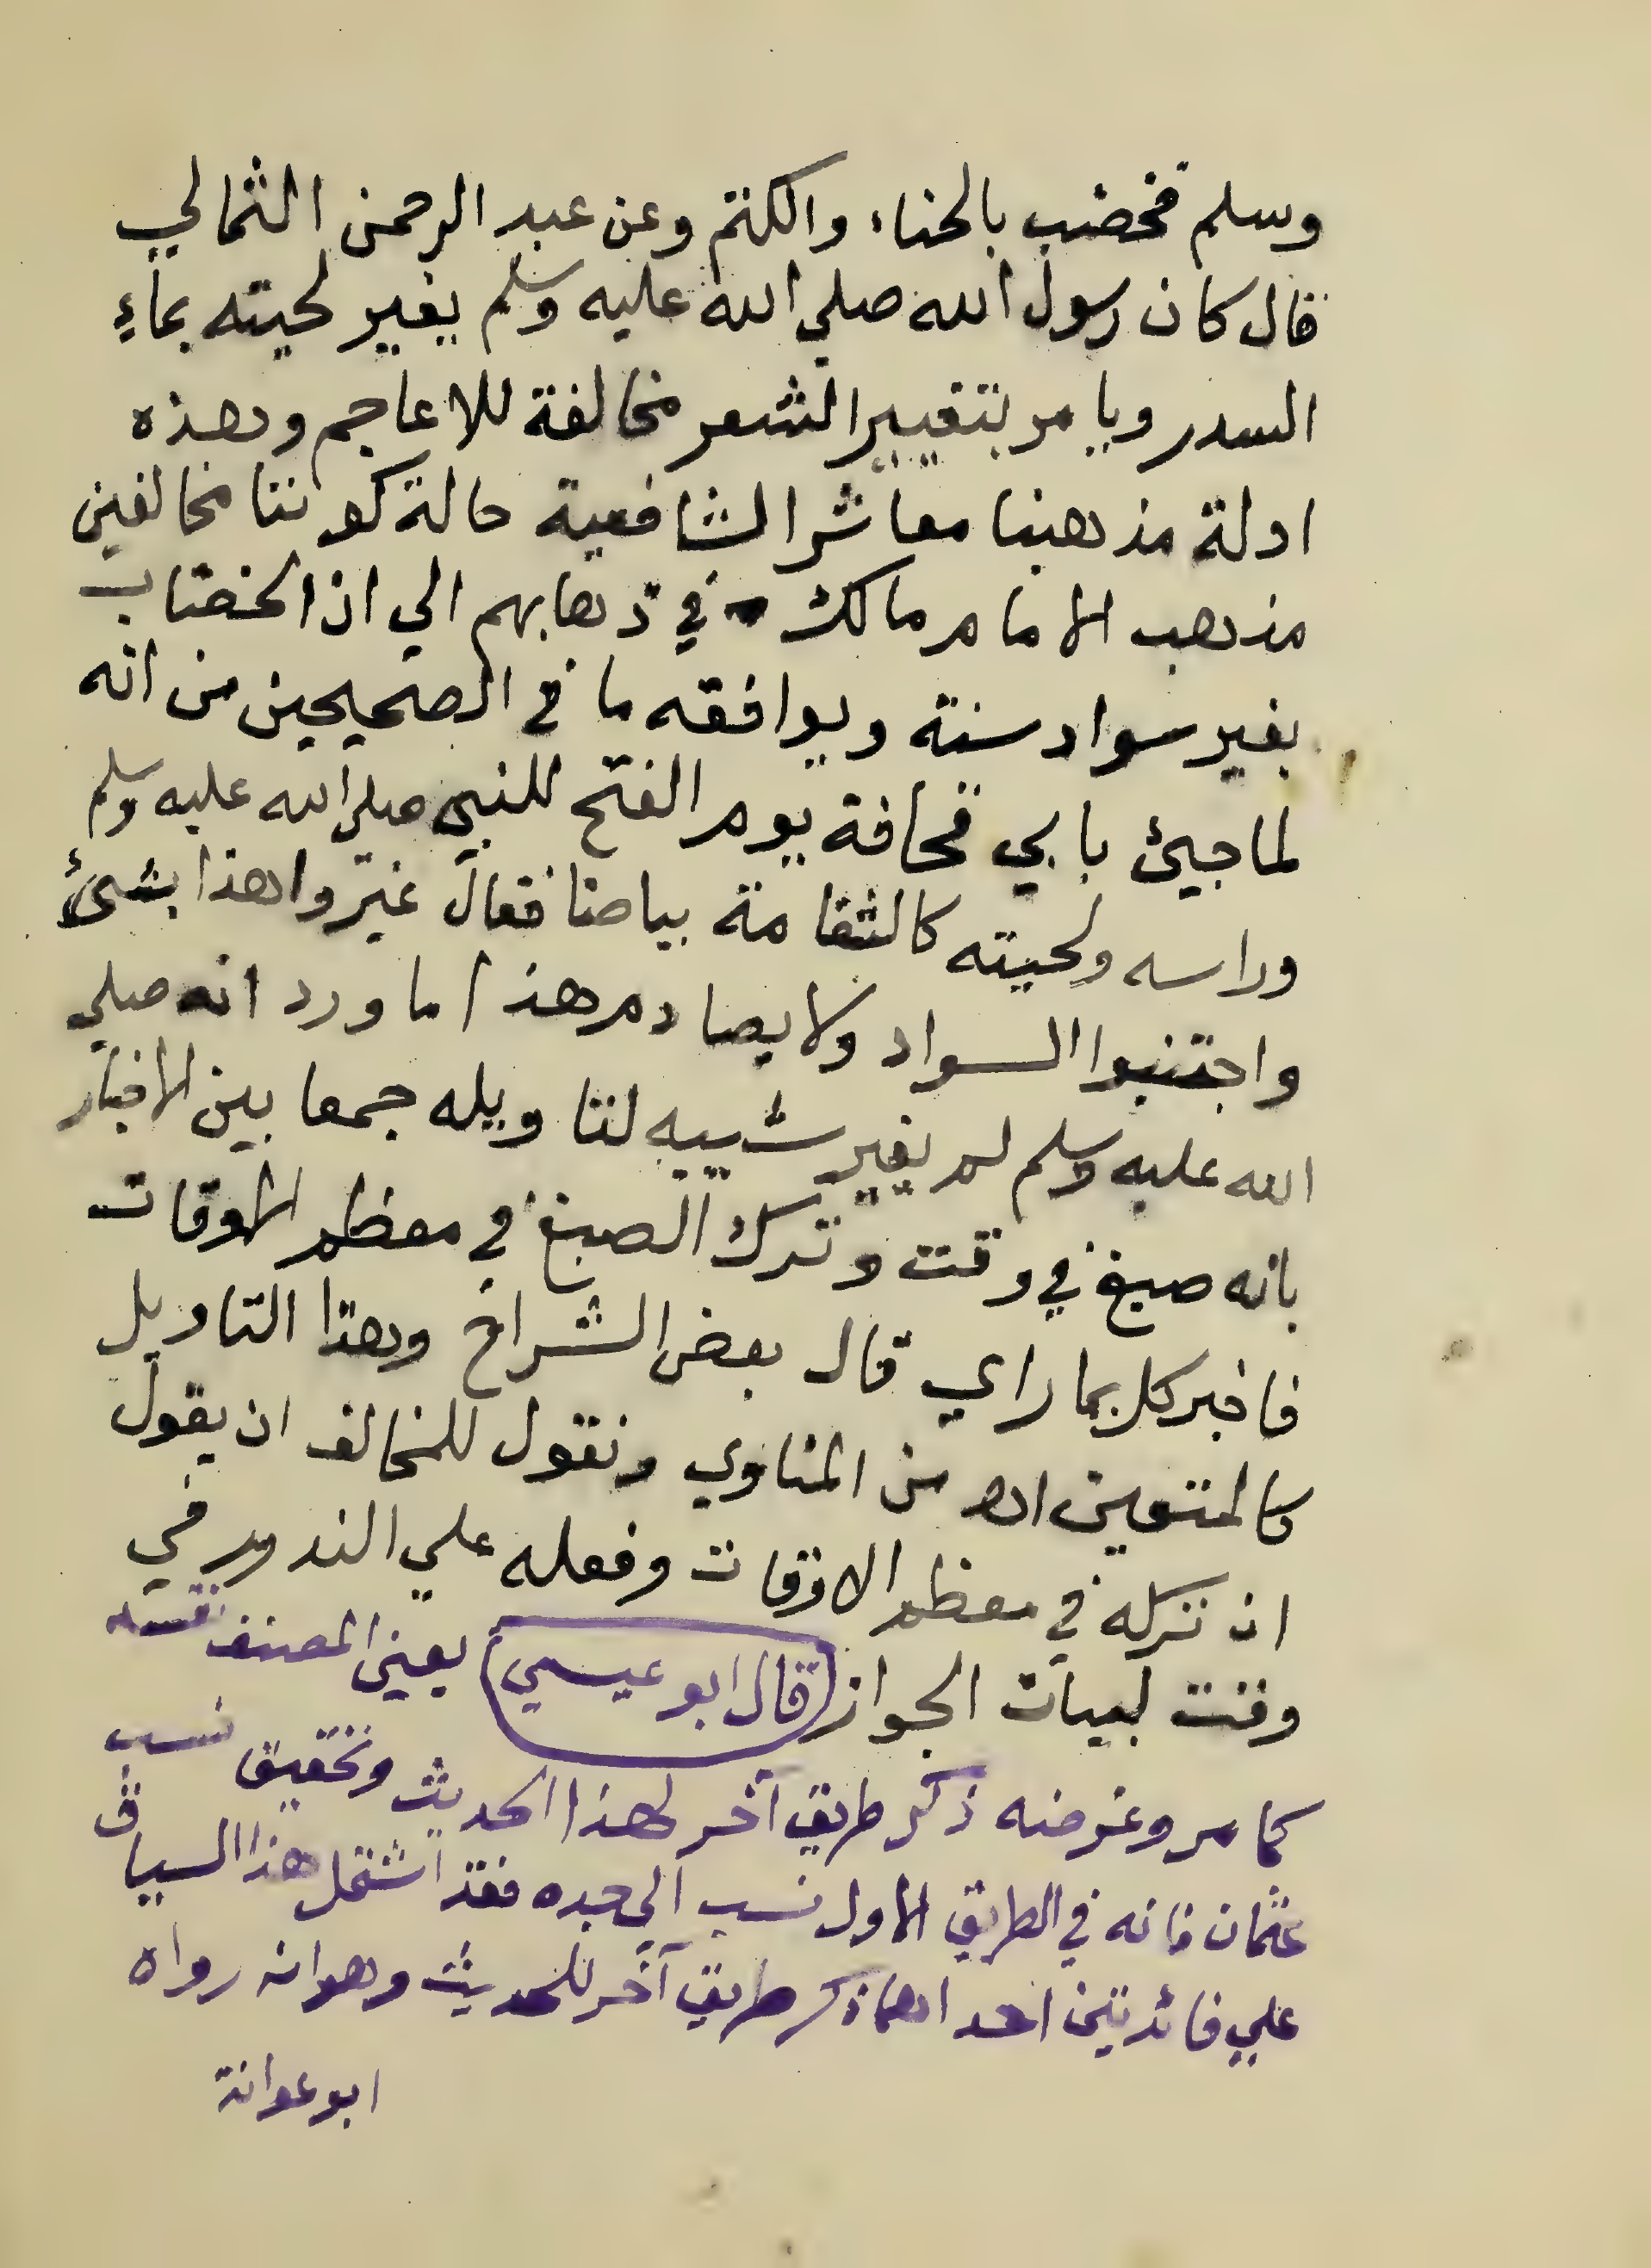 وسلم فخضب بالحناء والكتم وعن عبد الرحمن الثمالي
قال كان رسول الله صلي الله عليه وسلم يغير لحيته بماءِ
السدر ويامر بتغيير الشعر مخالفة للاعاجم وهذه
ادلة مذهبنا معاشر الشافعية حالة كوننا مخالفين
مذهب الامام مالك في ذهابهم الي ان الخضاب
بغير سواد سنة ويوافقه ما في الصحيحين من انه
لما جيئ بابي قحافة يوم الفتح للنبي صلي الله عليه وسلم
وراسه ولحيته كالثغامة بياضا فقال غيروا هذا بشئ
واجتنبوا السواد ولا يصادم هذا ما ورد انه صلي
الله عليه وسلم لم يغير شيبه لتاويله جمعا بين الاخبار
بانه صبغ في وقت وترك الصبغ في معظم الاوقات
فاخبر كل بما راي قال بعض الشراح وهذا التاويل
كالمتعين اهـ من المناوي ونقول للمخالف ان يقول
ان تركه في معظم الاوقات وفعله علي الندور في
وقت لبيان الجواز (قال ابو عيسي) يعني المصنف نفسه
كما مر وغرضه ذكر طريق آخر لهذا الحديث وتحقيق نسب
عثمان فانه في الطريق الاول نسب الي جده فقد اشتمل هذا السياق
علي فائدتين احداهما ذكر طريق آخر للحديث وهو انه رواه
ابو عوانة